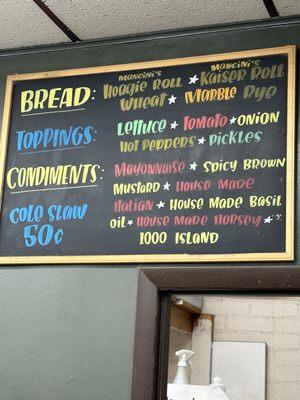 BREAD: Mancini's Hoagie Roll ★ Mancini's Kaiser Roll
Wheat ★ Marble Rye
TOPPINGS: Lettuce ★ Tomato ★ Onion
Hot Peppers ★ Pickles
CONDIMENTS: Mayonnaise ★ Spicy Brown
Mustard ★ House Made
Italian ★ House Made Basil
Cole Slaw
50¢
oil ★ House Made Horsey ★
1000 Island